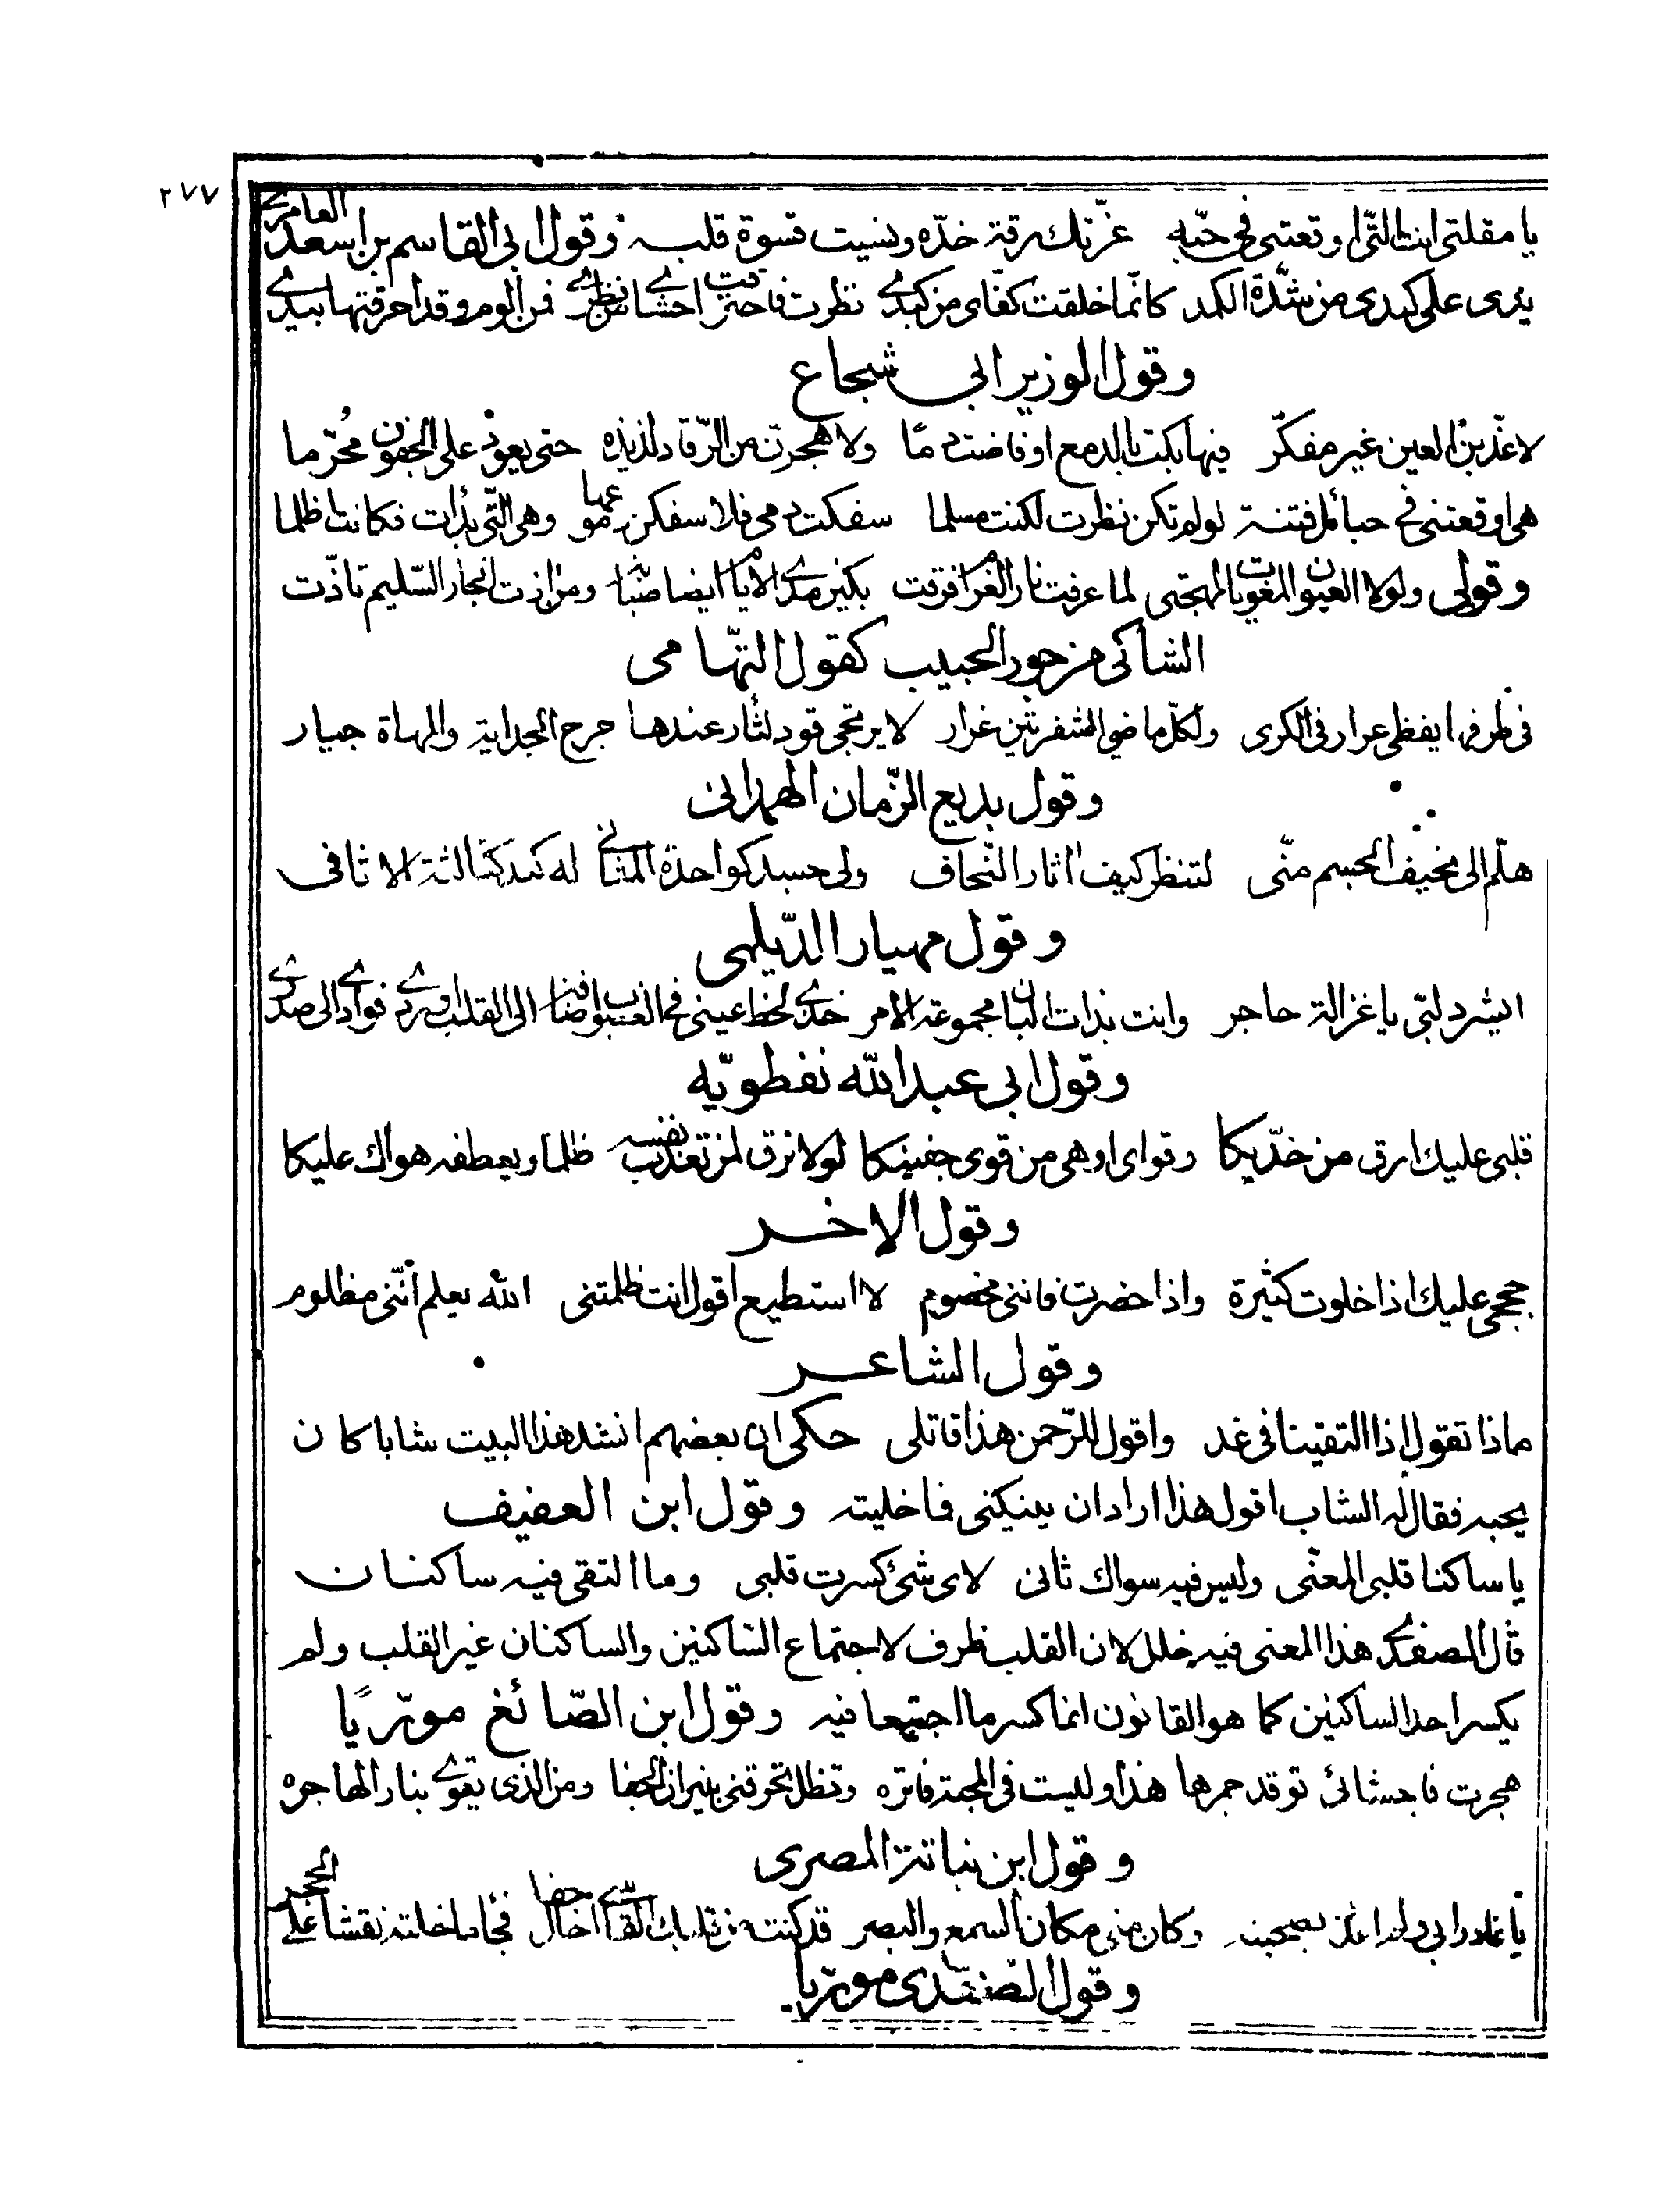 ٢٧٧
يا مقلتي انت التي اوقعتني في حبّه غرّتك رقة خدّه ونسيت قسوة قلبه وقول ابي القاسم بن اسعد العامري
يدى على كبدى من شدّة الكمد كانّما خلقت كفّاى من كبدي نظرت فاحترقت احشاي من نظري فمن الوم وقد احرقتها بيدي
وقول الوزير ابي شجاع
لاعذّبنّ العين غير مفكّر فيها بكت بالدمع او فاضت دمّا ولاهجرنّ من الرّقاد لذيذه حتى يعود على الجفون مُحرّما
هي اوقعتني في حبائل فتنة لو لم تكن نظرت لكنت مسلما سفكت دمي فلاسفكن دموعها وهي التي بدأت فكانت اظلما
وقولى ولولا العيون المغويات لمهجتى لما عرفت نار الغرام فرقت بكثير مدي الايام ايضا ومن اذت الجار السّليم تاذّت
الشاكى من جور الحبيب كقول التّهامى
فى طرفها يفظى عرار فى الكرى ولكلّ ماضي الشفرتين غرار لا يرتجى قود لثار عندها جرح الجداية والمهاة جبار
وقول بديع الزّمان الهمدانى
هلّم الى نحيف الجسم منّى لتنظر كيف اثار النّحاف ولى جسد كواحدة المثاني له كبد كثالثة الاثافى
وقول مهيار الدّيلمى
ايشرد لبّى يا غزالة حاجر وانت بذات البان مجموعة الامر خذي لحظ عينى في الغصوب اضافة الى القلب او ردي فوادي الى صدري
وقول ابي عبد الله نفطويّه
قلبى عليك ارق من خدّيكا وقواى اوهى من قوى جفنيكا لولا ترق لمن تعذب نفسه ظلما ويعطفه هواك عليكا
وقول الاخر
حججي عليك اذا خلوت كثيرة واذا حضرت فاننى مخصوم لا استطيع اقول انت ظلمتنى الله يعلم أنّنى مظلوم
وقول الشاعر
ماذا تقول اذا التقينا فى غد واقول للرّحمن هذا قاتلى حكى ان بعضهم انشد هذا البيت شابا كان
يحبه فقال له الشاب اقول هذا اراد ان ينيكنى فما خليته وقول ابن العفيف
يا ساكنا قلبى المعنّى وليس فيه سواك ثانى لاى شئ كسرت قلبى وما التقى فيه ساكنان
قال الصفدي هذا المعنى فيه خلل لان القلب ظرف لاجتماع السّاكنين والساكنان غير القلب ولم
يكسر احد الساكنين كما هو القانون انما كسر ما اجتمعا فيه وقول ابن الصّائغ مورّيًا
هجرت فاحشائى توقد جمرها هذا وليست فى المحبة فاتره وتظل تحرقنى بنيران الجفا ومن الذى يقوي بنار الهاجره
وقول ابن نباتة المصرى
يا غادرا بي ولم اغدر بصحبته وكان منى مكان السمع والبصر قد كنت من قلبك القاسي اخال جفا فجاء ما خلته نقشا على الحجر
وقول الصّفدى مورّيا